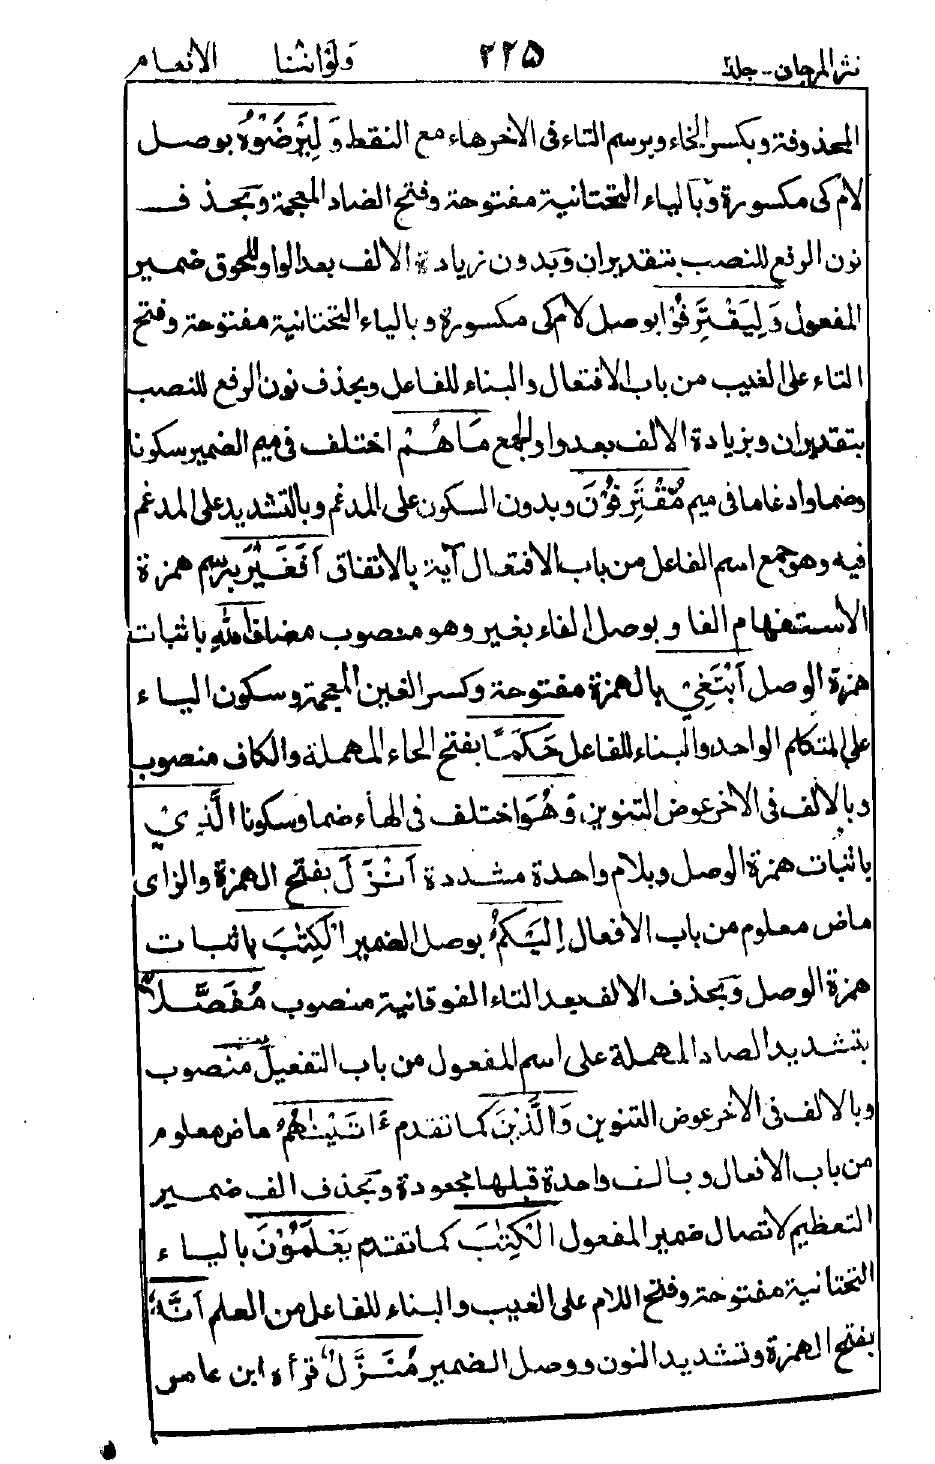 نثر المرجان - جلد ٢٢٥ ولواننا الانعام
المحذوفة وبكسر الخاء وبرسم التاء فى الاخرهاء مع النقط وَلِيَرْضَوْهُ بوصل
لام كى مكسورة وبالياء التحتانية مفتوحة وفتح الضاد المعجمة وبحذف
نون الرفع للنصب بتقدير ان وبدون زيادة الالف بعد الواو للحوق ضمير
المفعول وَلِيَقْتَرِفُوْا بوصل لام كى مكسورة وبالياء التحتانية مفتوحة وفتح
التاء على الغيب من باب الافتعال والبناء للفاعل وبحذف نون الرفع للنصب
بتقدير ان وبزيادة الالف بعد واو الجمع مَا هُمْ اختلف فى ميم الضمير سكونا
وضما وادغاما فى ميم مُّقْتَرِفُوْنَ وبدون السكون على المدغم وبالتشديد على المدغم
فيه وهو جمع اسم الفاعل من باب الافتعال آية بالاتفاق اَفَغَيْرَ برسم همزة
الاستفهام الفا وبوصل الفاء بغير وهو منصوب مضاف اللهِ باثبات
همزة الوصل اَبْتَغِيْ بالهمزة مفتوحة وكسر الغين المعجمة وسكون الياء
على المتكلم الواحد والبناء للفاعل حَكَمًا بفتح الحاء المهملة والكاف منصوب
وبالالف فى الاخر عوض التنوين وَهُوَ اختلف فى الهاء ضما وسكونا الَّذِيْ
باثبات همزة الوصل وبلام واحدة مشددة اَنْزَلَ بفتح الهمزة والزاى
ماض معلوم من باب الافعال اِلَيْكُمُ بوصل الضمير الْكِتٰبَ باثبات
همزة الوصل وبحذف الالف بعد التاء الفوقانية منصوب مُفَصَّلًا
بتشديد الصاد المهملة على اسم المفعول من باب التفعيل منصوب
وبالالف فى الاخر عوض التنوين وَالَّذِيْنَ كما تقدم ءَاتَيْنٰهُمُ ماض معلوم
من باب الافعال وبالف واحدة قبلها مجعودة وبحذف الف ضمير
التعظيم لاتصال ضمير المفعول الْكِتٰبَ كما تقدم يَعْلَمُوْنَ بالياء
التحتانية مفتوحة وفتح اللام على الغيب والبناء للفاعل من العلم اَنَّهٗ
بفتح الهمزة وتشديد النون ووصل الضمير مُنَزَّلٌ قرأه ابن عامر